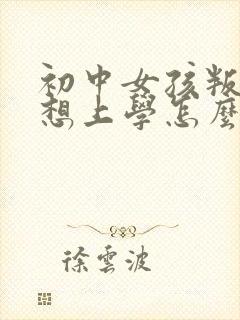 初中女孩叛
想上學怎麼
徐雲波